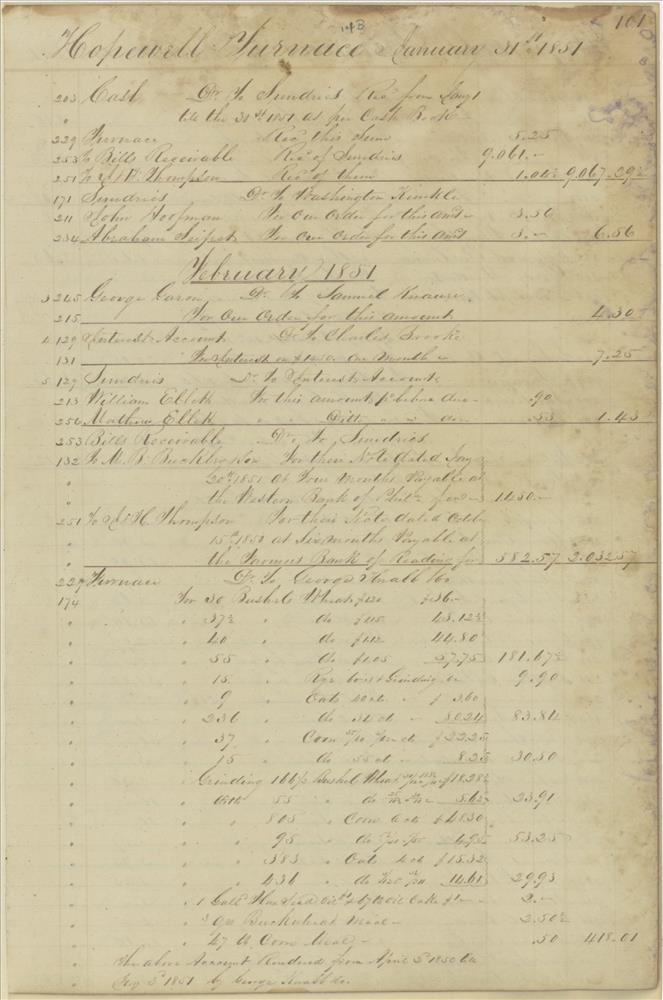 143 161
Hopewell Furnace January 31st 1851
203 Cash Dr To Sundries Recd from Jany 1
" till the 31st 1851 as per Cash Book
229 Furnace Recd this Sum 5.25
253 To Bills Receivable Recd of Sundries 9.061.-
251 To J & H Thompson Recd of them 1.04½ 9.067.29½
171 Sundries Dr To Washington Kinkle
211 John Hoofman For Our Order for this amt 3.56
234 Abraham Seifert For Our Order for this amt 3.- 6.56
February 1851
3 245 George Caron Dr To Samuel Knauer
215 For Our Order for this amount 4.30
4 129 Interest Account Dr To Charles Brooke
131 For Interest on $1450. One Month 7.25
5 129 Sundries Dr To Interest Account
213 William Elleth For this amount pr before due .90
256 Mathew Elleth " Ditto " " do .53 1.43
253 Bills Receivable Dr To Sundries
132 To M. B. Buckley & Son For their Note dated Jany
" 20th 1851 at Four Months Payable at
" the Western Bank of Phila for 1450.-
251 To J & H. Thompson For their Note dated Octbr
" 15th 1850 at Six Months Payable at
" the Farmers Bank of Reading for 582.57 2.032.57
229 Furnace Dr To George Knabb & Co
174 For 30 Bushels Wheat $120 $36.-
" " 37½ " do $115 43.12½
" " 40 " do $112 44.80
" " 55 " do $1.05 57.75 181.67½
" " 15 " Rye 9.90
" " 9 " Oats 40 ct $3.60
" " 236 " do 34 ct 80.24 83.84
" " 37 " Corn $22.25
" " 15 " do 55 ct 8.25 30.50
" Grinding 166½ Bushel Wheat $18.28½
" " 55 " do 5.62½ 23.91
" " 805 " Corn 6 ct $48.30
" " 95 " do 4.95 53.25
" " 383 " Oats 4 ct $15.32
" " 436 " do 14.61 29.93
" 1 Gall Flax Seed Oil Oil Cake 2.-
" 3 Qrs Buckwheat Meal 2.50½
" 47 lb Corn Meal .50 418.01
" The above Account Rendered from April 5th 1850 till
" Feby 5th 1851 by George Knabb & Co